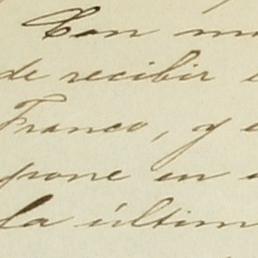 Con m
de recibir
Franco, y
pone en
la últim